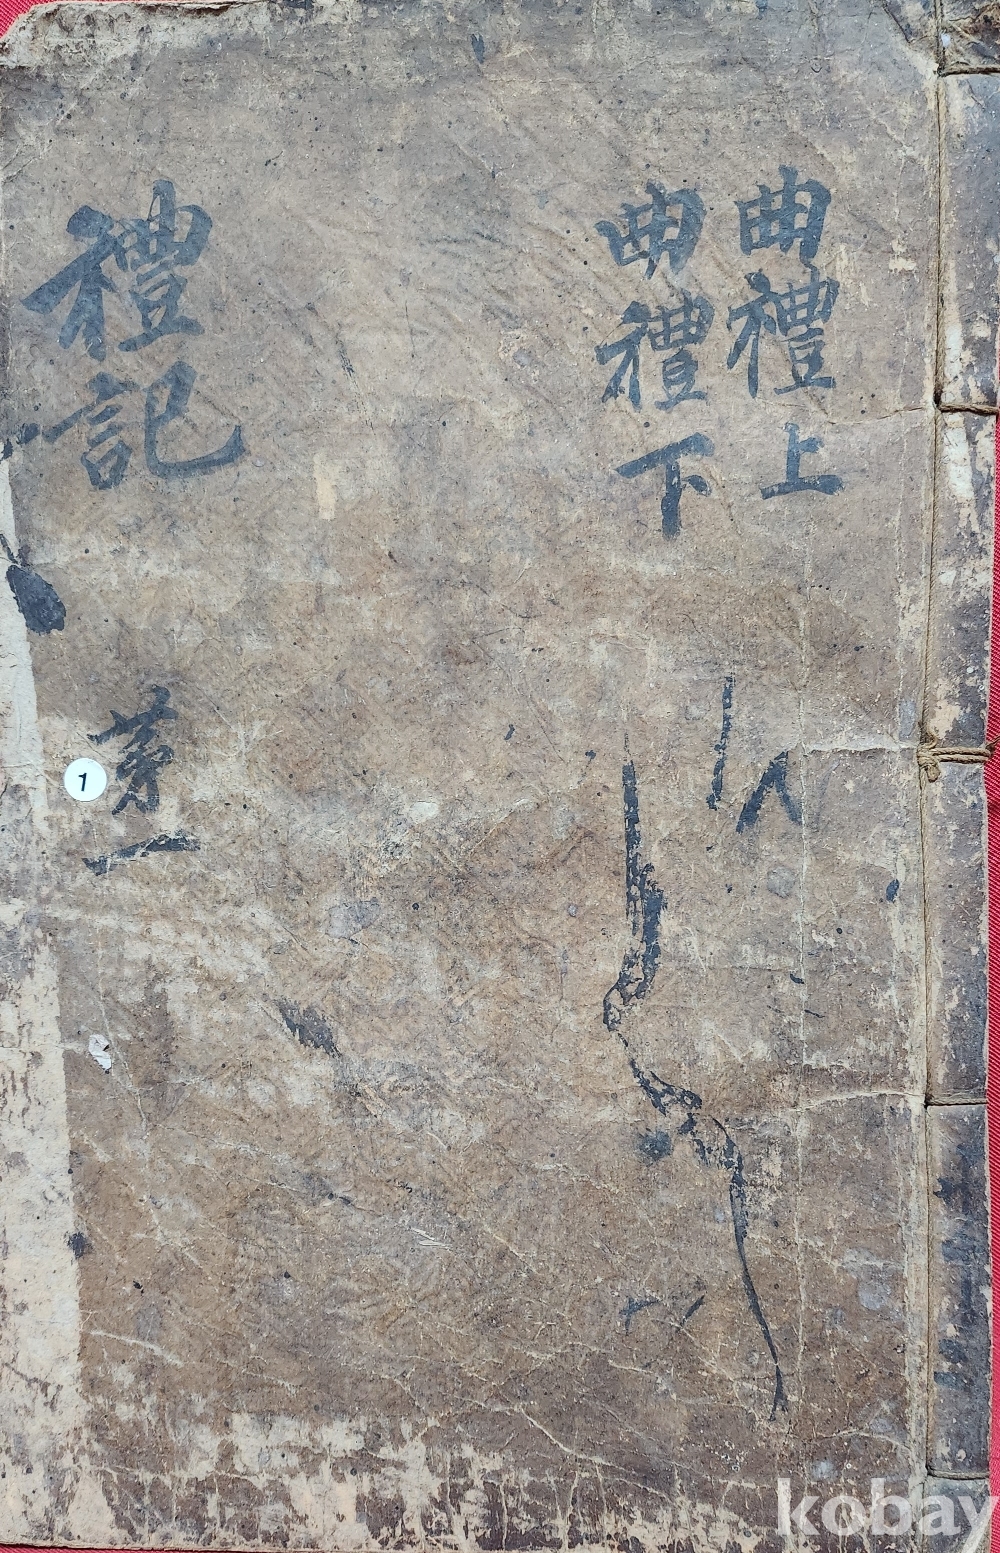 曲禮上
曲禮下
禮記
第一
1
kobay